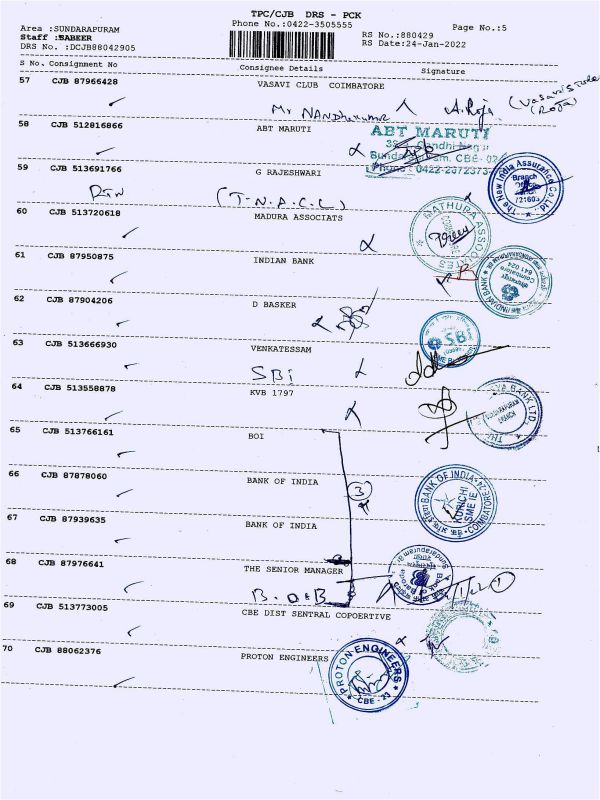 TPC/CJB DRS - PCK
Area :SUNDARAPURAM Phone No.:0422-3505555 Page No.:5
Staff :SABEER RS No.:880429
DRS No. :DCJB88042905 RS Date:24-Jan-2022
S No. Consignment No Consignee Details Signature
57 CJB 87966428 VASAVI CLUB COIMBATORE
Mr NANDhakumar A.Roja
58 CJB 512816866 ABT MARUTI
ABT MARUTI
59 CJB 513691766 G RAJESHWARI
The New India Assurance Co. Ltd.
Branch
(T.N.A.C.L)
60 CJB 513720618 MADURA ASSOCIATS
MATHURA ASSOCIATES
61 CJB 87950875 INDIAN BANK
INDIAN BANK
62 CJB 87904206 D BASKER
SBI
63 CJB 513666930 VENKATESSAM
SBI
64 CJB 513558878 KVB 1797
BANK LTD.
65 CJB 513766161 BOI
66 CJB 87878060 BANK OF INDIA
3
BANK OF INDIA
KURICHI
SME IE
COIMBATORE-24
67 CJB 87939635 BANK OF INDIA
68 CJB 87976641 THE SENIOR MANAGER
Bank of Baroda
B.O.B
69 CJB 513773005 CBE DIST SENTRAL COPOERTIVE
70 CJB 88062376 PROTON ENGINEERS
PROTON ENGINEERS
CBE - 23